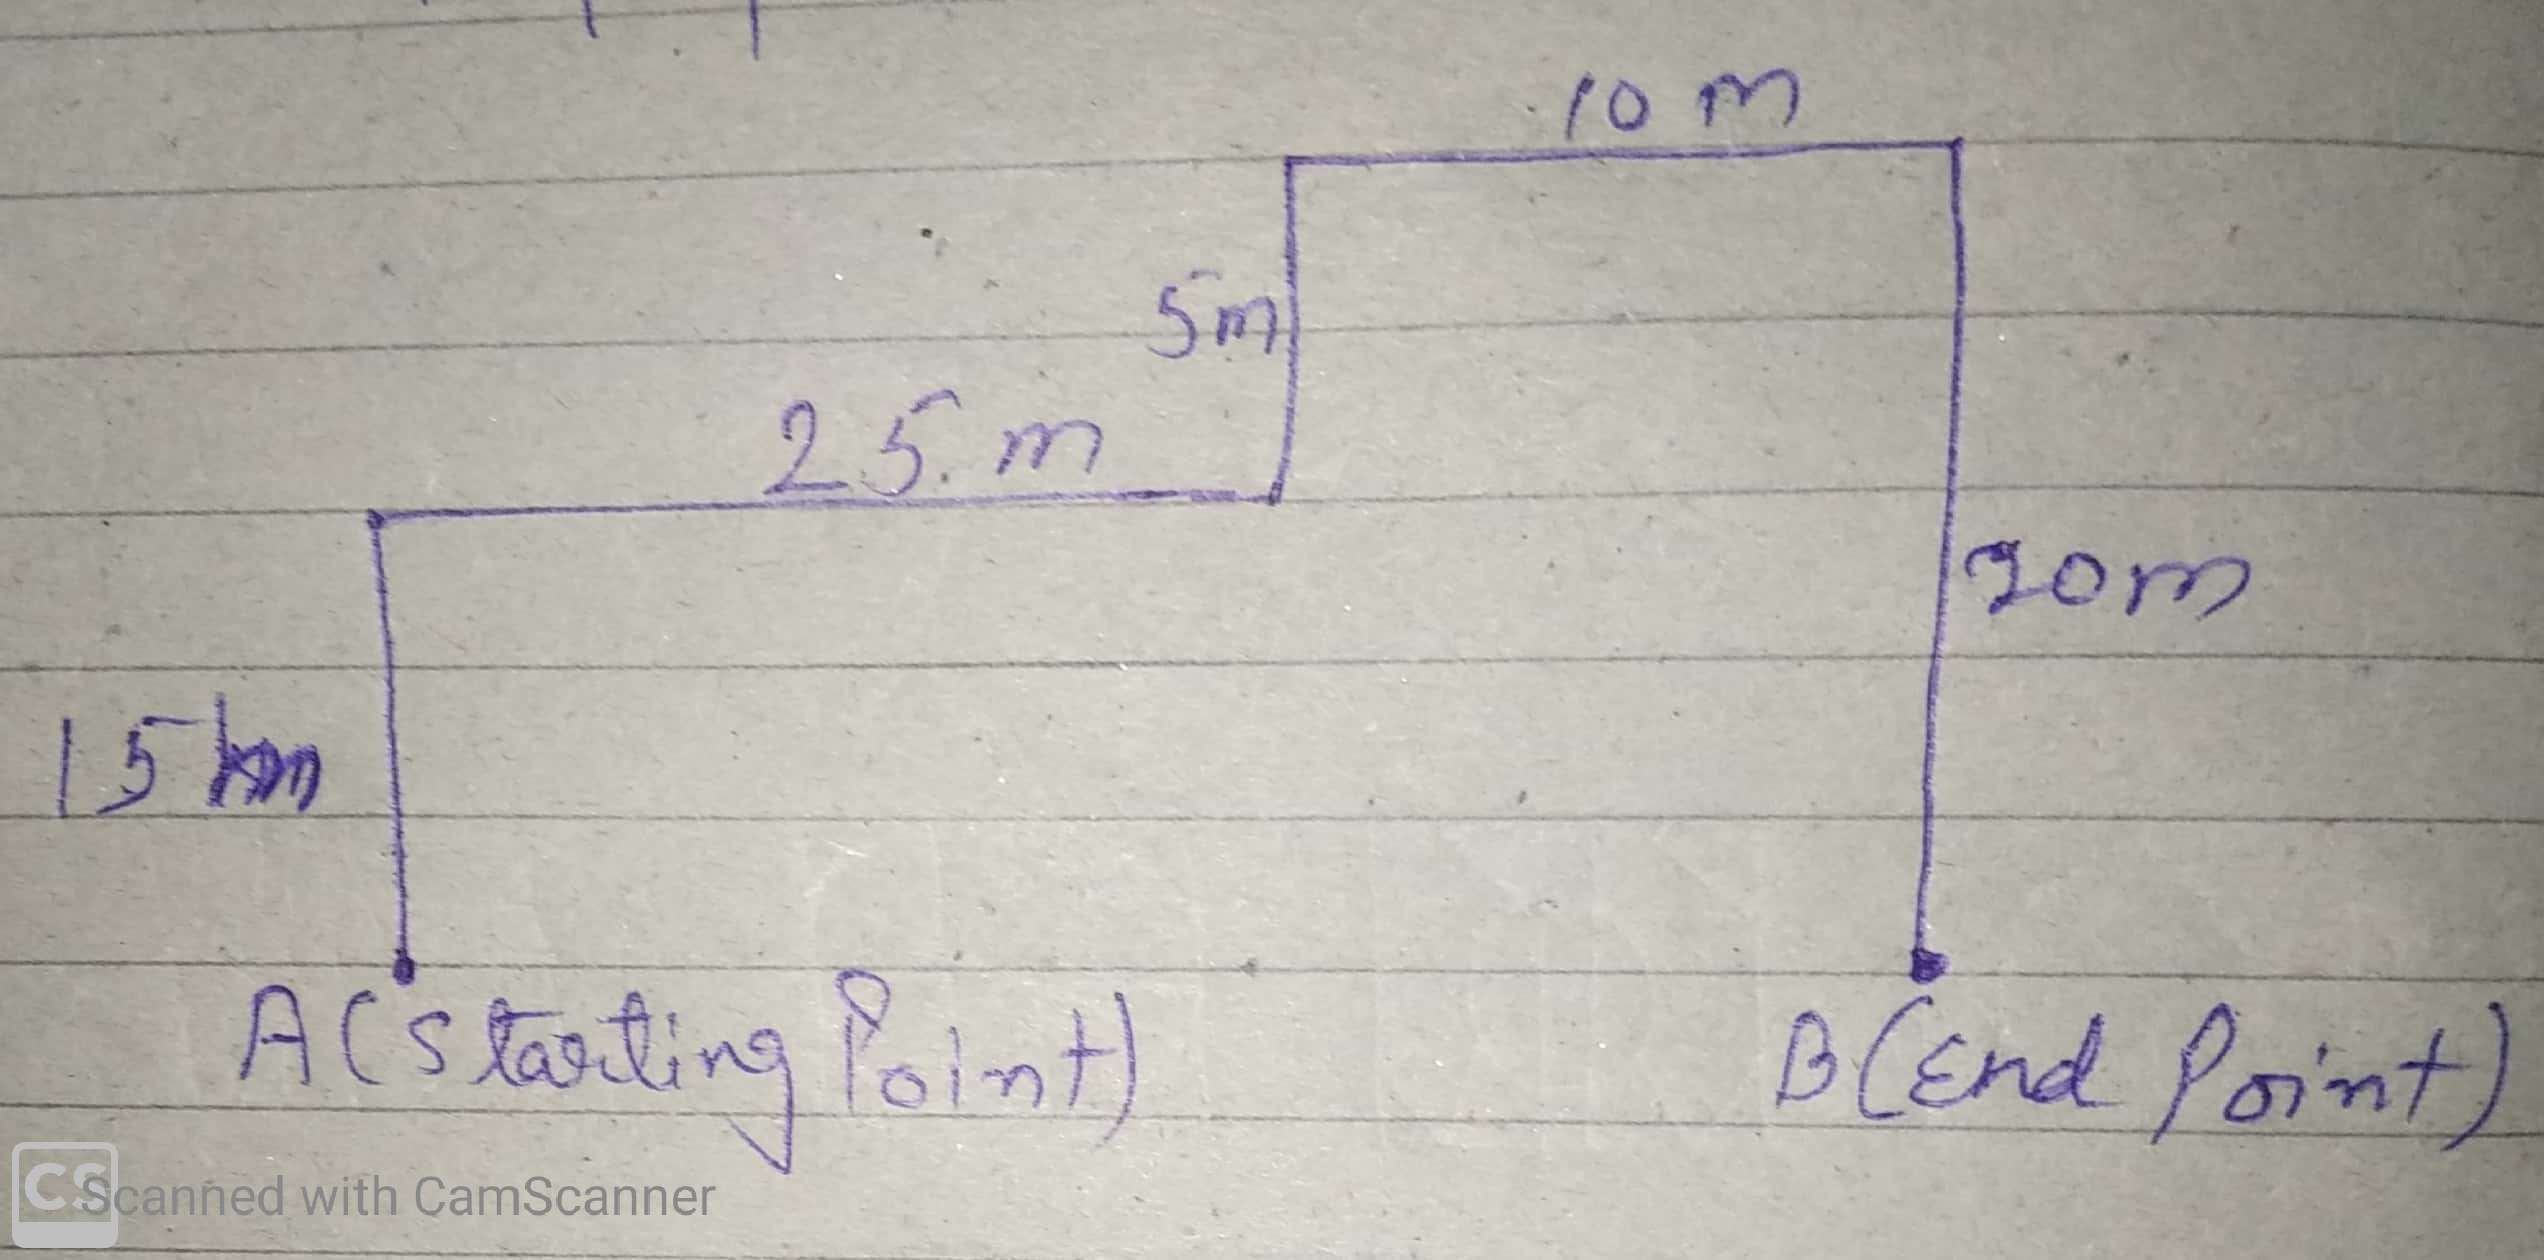 10 m
5m
25 m
20m
15
A (Starting Point)
B (End Point)
CS Scanned with CamScanner